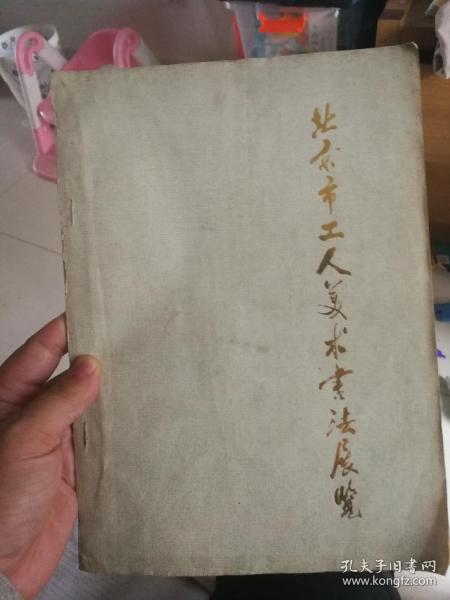 北京市工人美术书法展览
孔夫子旧书网
www.kongfz.com